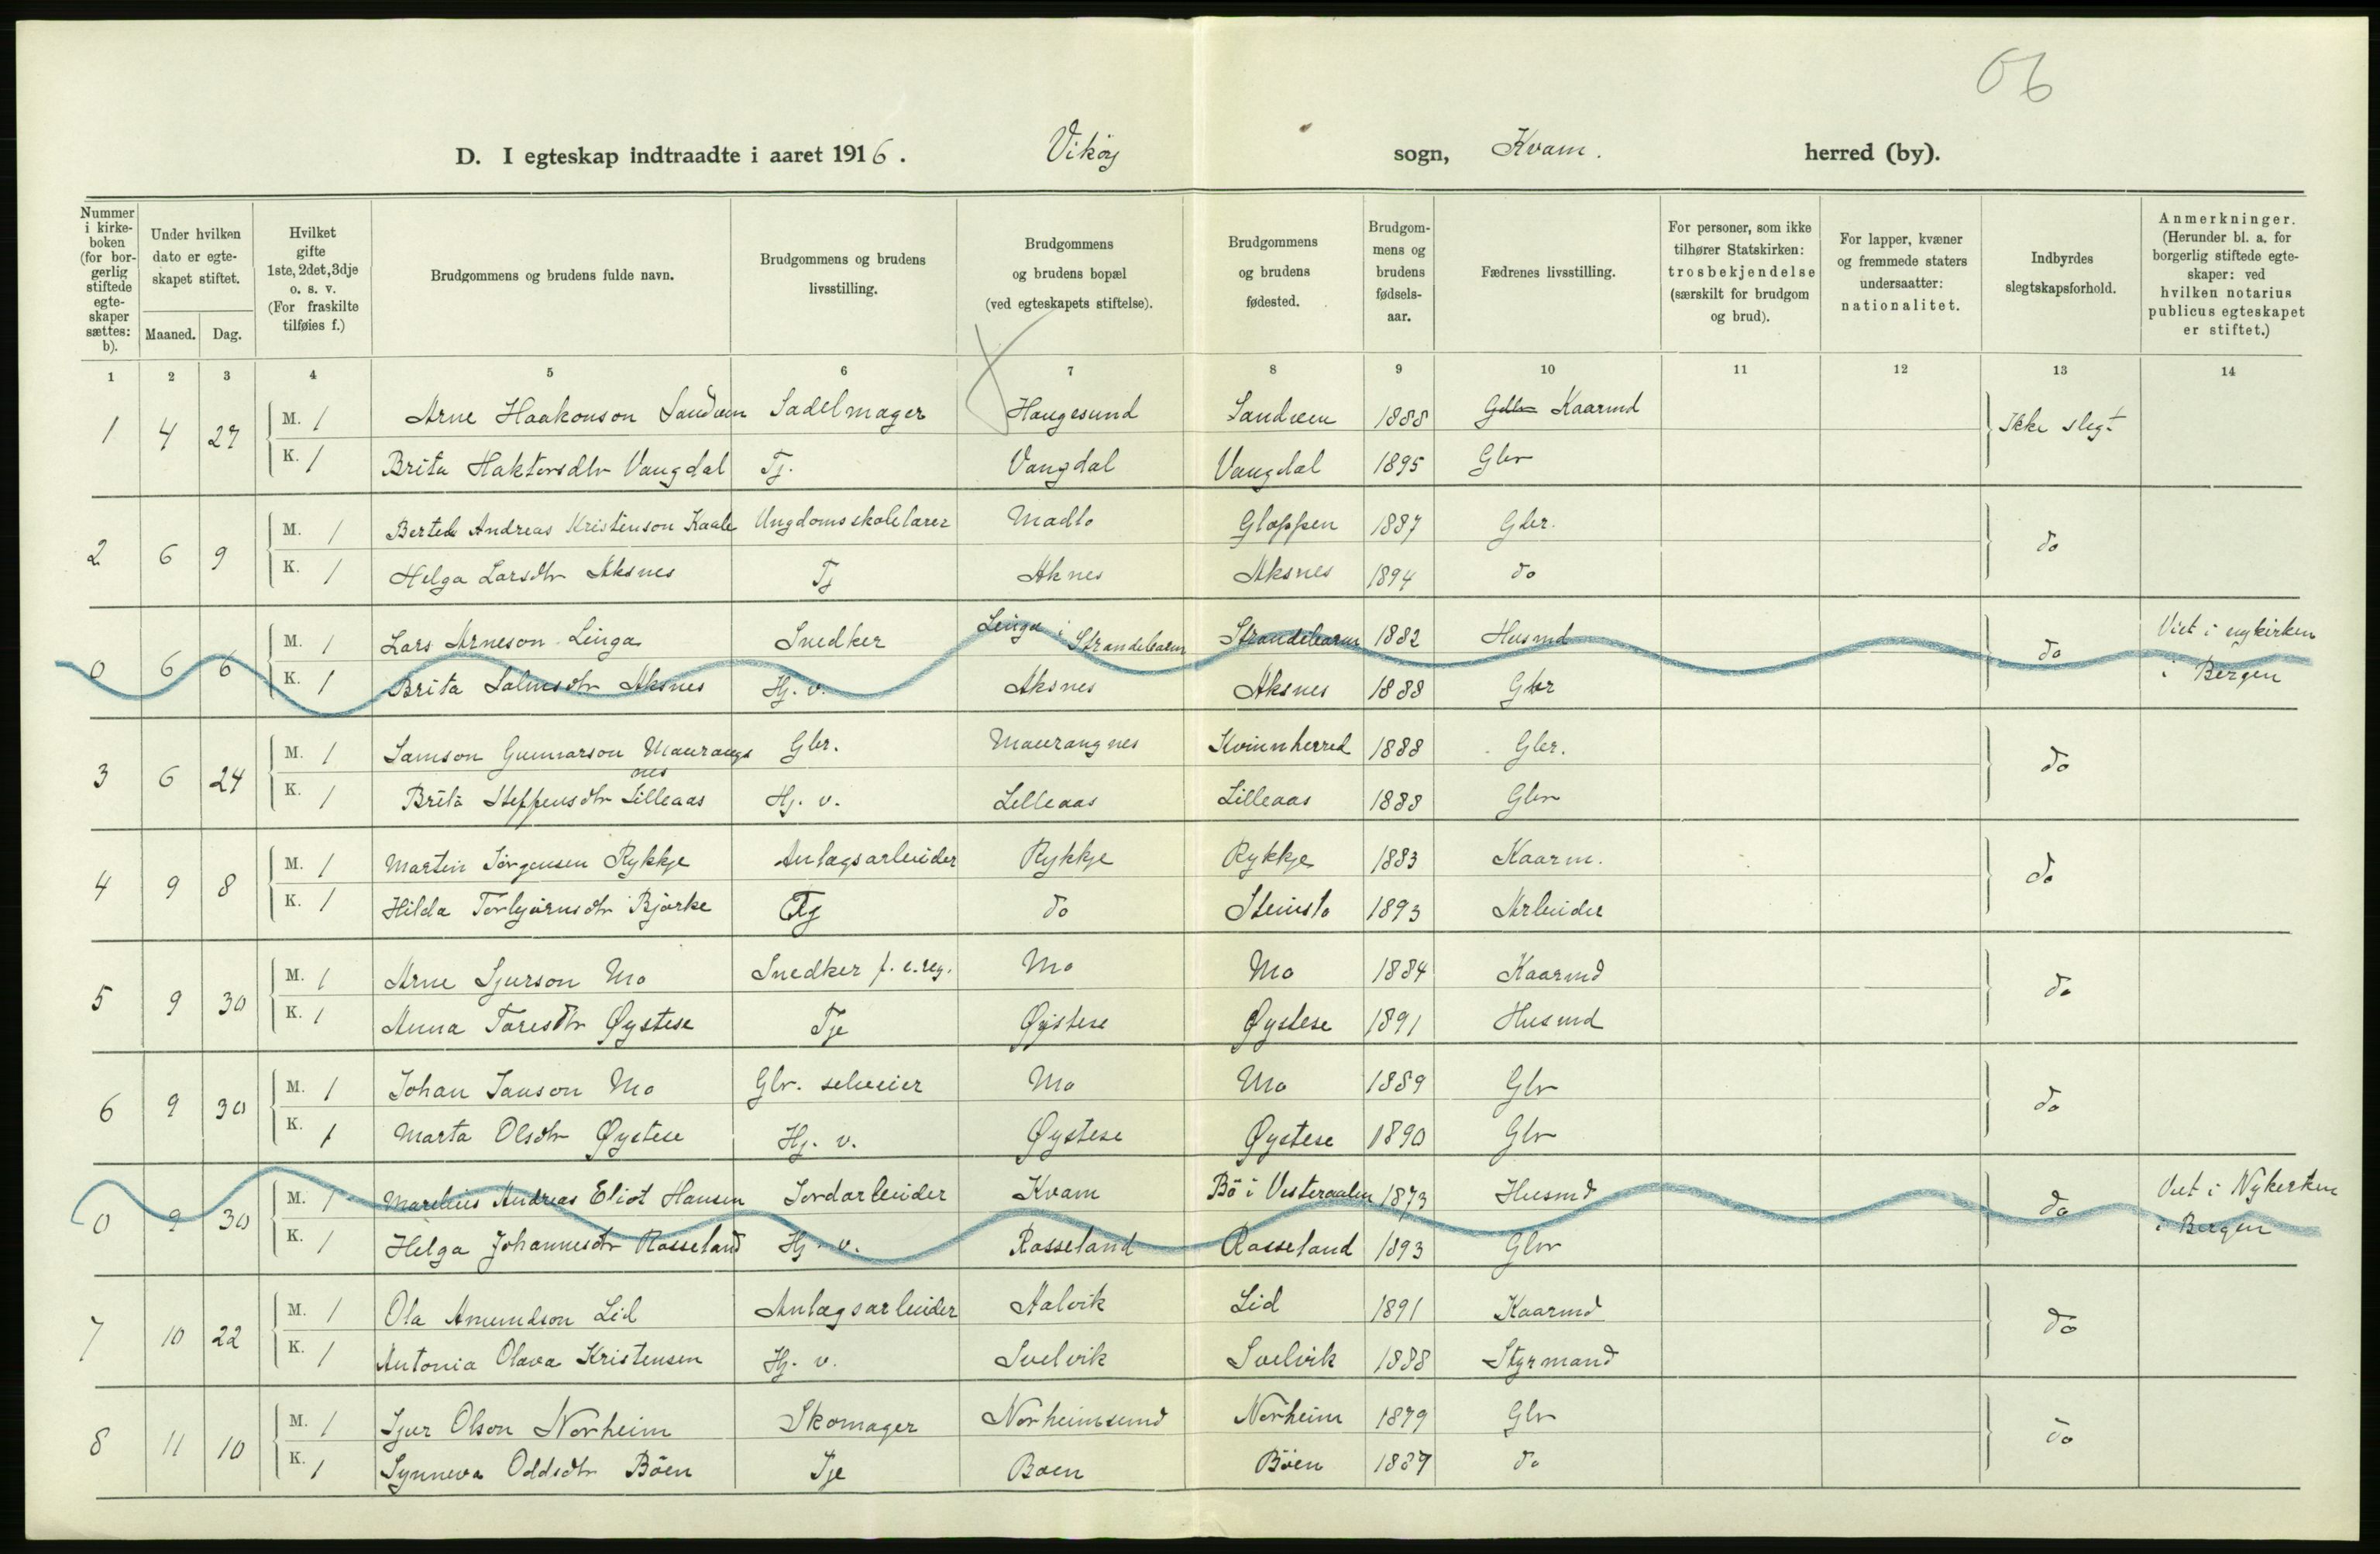 06
D. I egteskap indtraadte i aaret 1916. Vikøy sogn, Kvam. herred (by).
Nummer i kirkeboken (for borgerlig stiftede egteskaper sættes: b).
Under hvilken dato er egteskapet stiftet.
Maaned. Dag.
Hvilket gifte 1ste, 2det, 3dje o. s. v. (For fraskilte tilføies f.)
Brudgommens og brudens fulde navn.
Brudgommens og brudens livsstilling.
Brudgommens og brudens bopæl (ved egteskapets stiftelse).
Brudgommens og brudens fødested.
Brudgommens og brudens fødselsaar.
Fædrenes livsstilling.
For personer, som ikke tilhører Statskirken: trosbekjendelse (særskilt for brudgom og brud).
For lapper, kvæner og fremmede staters undersaatter: nationalitet.
Indbyrdes slegtskapsforhold.
Anmerkninger. (Herunder bl. a. for borgerlig stiftede egteskaper: ved hvilken notarius publicus egteskapet er stiftet.)
1 2 3 4 5 6 7 8 9 10 11 12 13 14
1 4 27 M. 1 Arne Haakonson Sandven Sadelmager Haugesund Sandven 1888 Kaarmd Ikke slegt
K. 1 Brita Haktorsdtr Vangdal Tj. Vangdal Vangdal 1895 Gbr
2 6 9 M. 1 Andreas Kristenson Kaale Ungdomsskolelærer Madla Gloppen 1887 Gbr. do
K. 1 Helga Larsdtr Aksnes Tj Aknes Aksnes 1894 do
0 6 6 M. 1 Lars Arneson Linga Snedker Linga i Strandebarm Strandebarm 1882 Husmd do Viet i nykirken
K. 1 Brita Salmsdtr Aksnes Hj. v. Aksnes Aksnes 1888 Gbr i Bergen
3 6 24 M. 1 Samson Gunnarson Maurangsnes Gbr. Maurangnes Kvinnherred 1888 Gbr. do
K. 1 Brita Steffensdtr Lilleaas Hj. v. Lilleaas Lilleaas 1888 Gbr
4 9 8 M. 1 Martin Jørgensen Rykkje Anlægsarbeider Rykkje Rykkje 1883 Kaarm. do
K. 1 Hilda Torbjørnsdtr Bjørke Tj do Steinstø 1893 Arbeider
5 9 30 M. 1 Arne Sjurson Mo Snedker f. e. reg. Mo Mo 1884 Kaarmd do
K. 1 Anna Toresdtr Øystese Tje Øystese Øystese 1891 Husmd
6 9 30 M. 1 Johan Janson Mo Gbr. selveier Mo Mo 1889 Gbr do
K. 1 Marta Olsdtr Øystese Hj. v. Øystese Øystese 1890 Gbr
0 9 30 M. 1 Marelius Andreas Eliot Hansen Jordarbeider Kvam Bö i Vesteraalen 1873 Husmd do Viet i Nykerken
K. 1 Helga Johannesdtr Rosseland Hj. v. Rosseland Rosseland 1893 Gbr i Bergen
7 10 22 M. 1 Ola Amundson Lid Anlægsarbeider Aalvik Lid 1891 Kaarmd do
K. 1 Antonia Olava Kristensen Hj. v. Svelvik Svelvik 1888 Styrmand
8 11 10 M. 1 Sjur Olson Norheim Skomager Norheimsund Norheim 1879 Gbr do
K. 1 Synneva Oddsdtr Böen Tje Böen Böen 1889 do